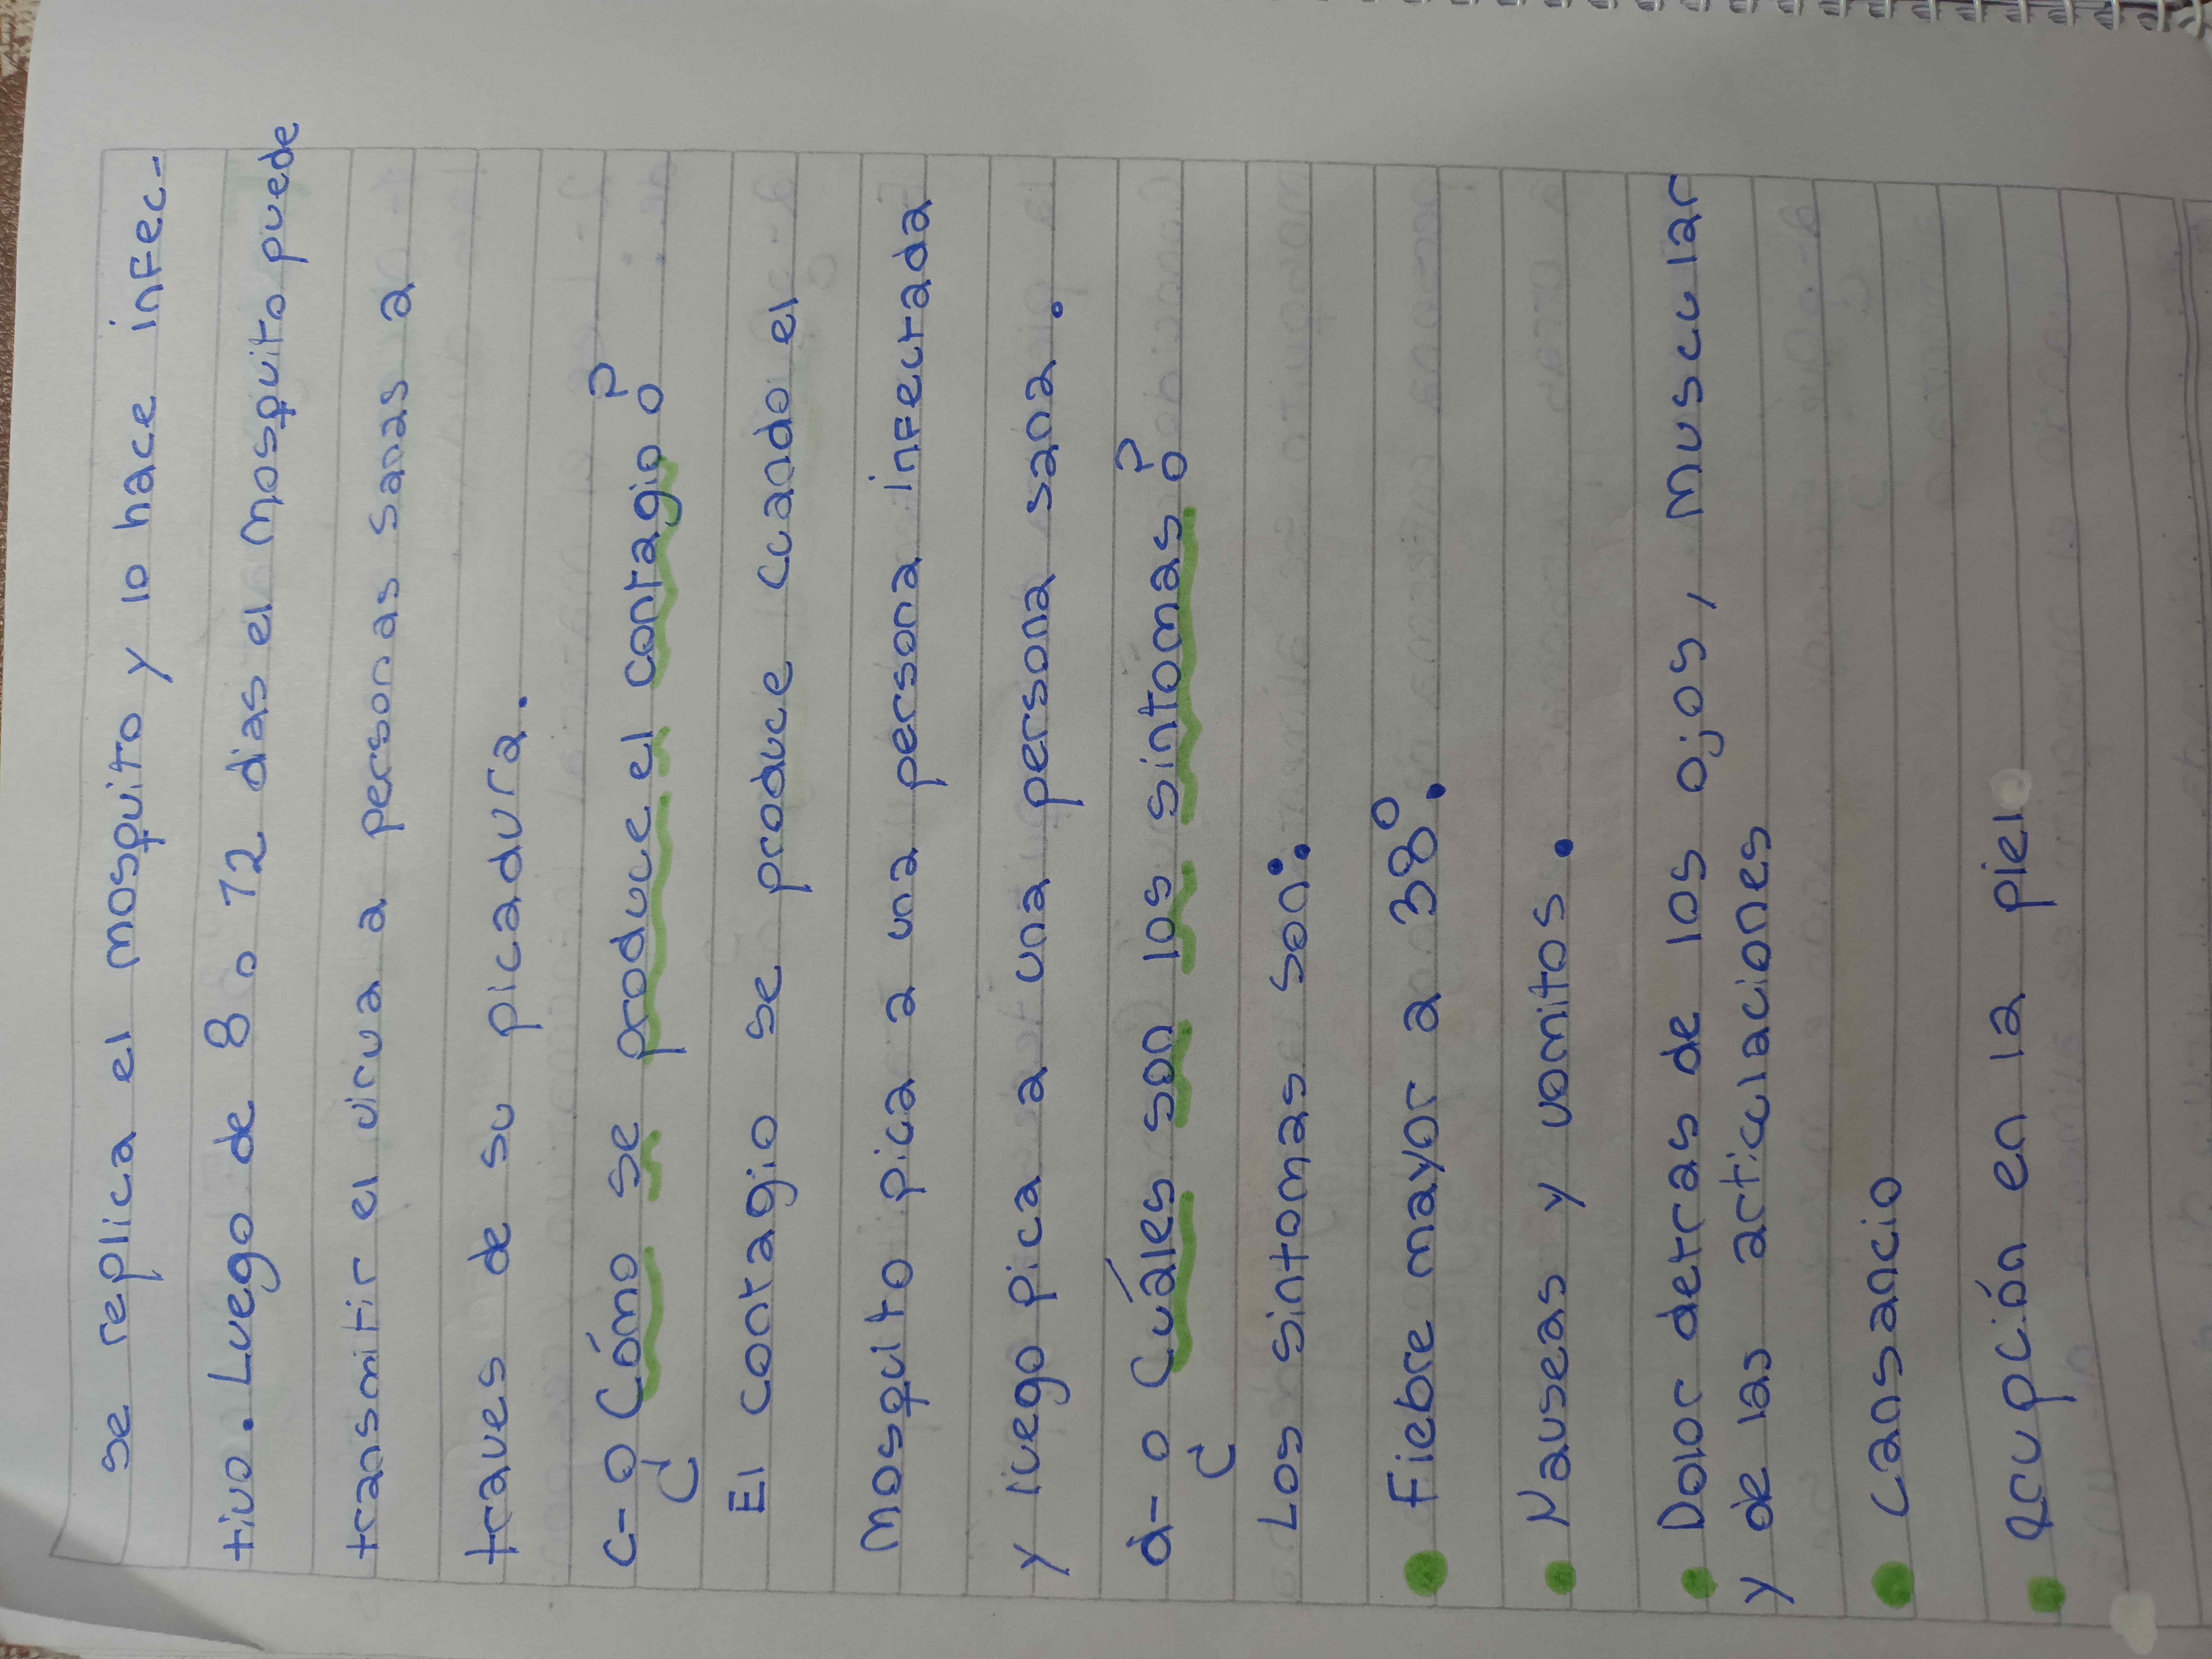 se replica el mosquito y lo hace infec-
tivo. Luego de 8 o 12 dias el mosquito puede
transmitir el virua a personas sanas a
traves de su picadura.
c- ¿Cómo se produce el contagio?
El contagio se produce cuando el
mosquito pica a una persona infectada
y luego pica a una persona sana.
d- ¿Cuáles son los sintomas?
Los sintomas son:
• Fiebre mayor a 38°.
• Nauseas y vomitos.
• Dolor detras de los ojos, muscular
y de las articulaciones
• Cansancio
• erupción en la piel